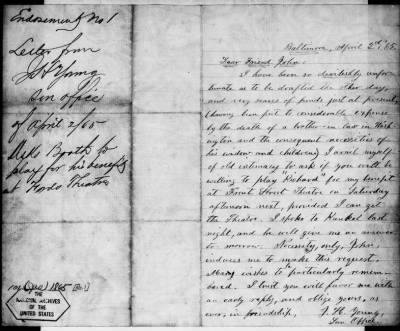 Endorsement No 1
Letter from
J H Young
Sun office
of April 2/65
Asks Booth to
play for his benefit
at Fords Theatre
1865
THE
NATIONAL ARCHIVES
OF THE
UNITED STATES
Baltimore, April 2nd, 65.
Dear Friend John:
I have been so devilishly unfor-
tunate as to be drafted the other day,
and very scarce of funds just at present,
(having been put to considerable expense
by the death of a brother-in-law in Wash-
ington and the consequent necessities of
his widow and children) I avail myself
of old intimacy to ask if you will be
willing to play "Richard" for my benefit
at Front Street Theatre on Saturday
afternoon next, provided I can get
the Theatre. I spoke to Kunkel last
night, and he will give me an answer
to-morrow. Necessity, only, John,
induces me to make this request.
wishes to particularly remem-
bered. I trust you will favor me with
an early reply, and oblige yours, as
ever, in friendship, J. H. Young,
Sun Office